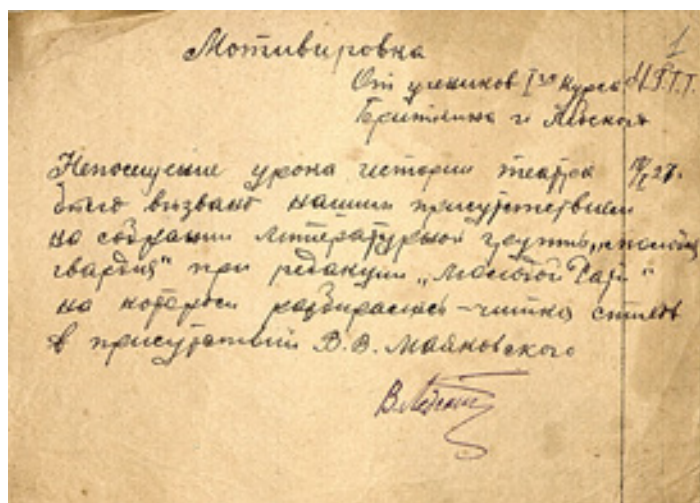 1
Мотивировка
От учеников I го курса
Бритлина и
Непосещение урона истории театра
было вызвано нашим присутствием
на собрании литературной группы „молодая
гвардия“ при редакции
на которой разбиралась-читка стихов
в присутствии В.В. Маяковского